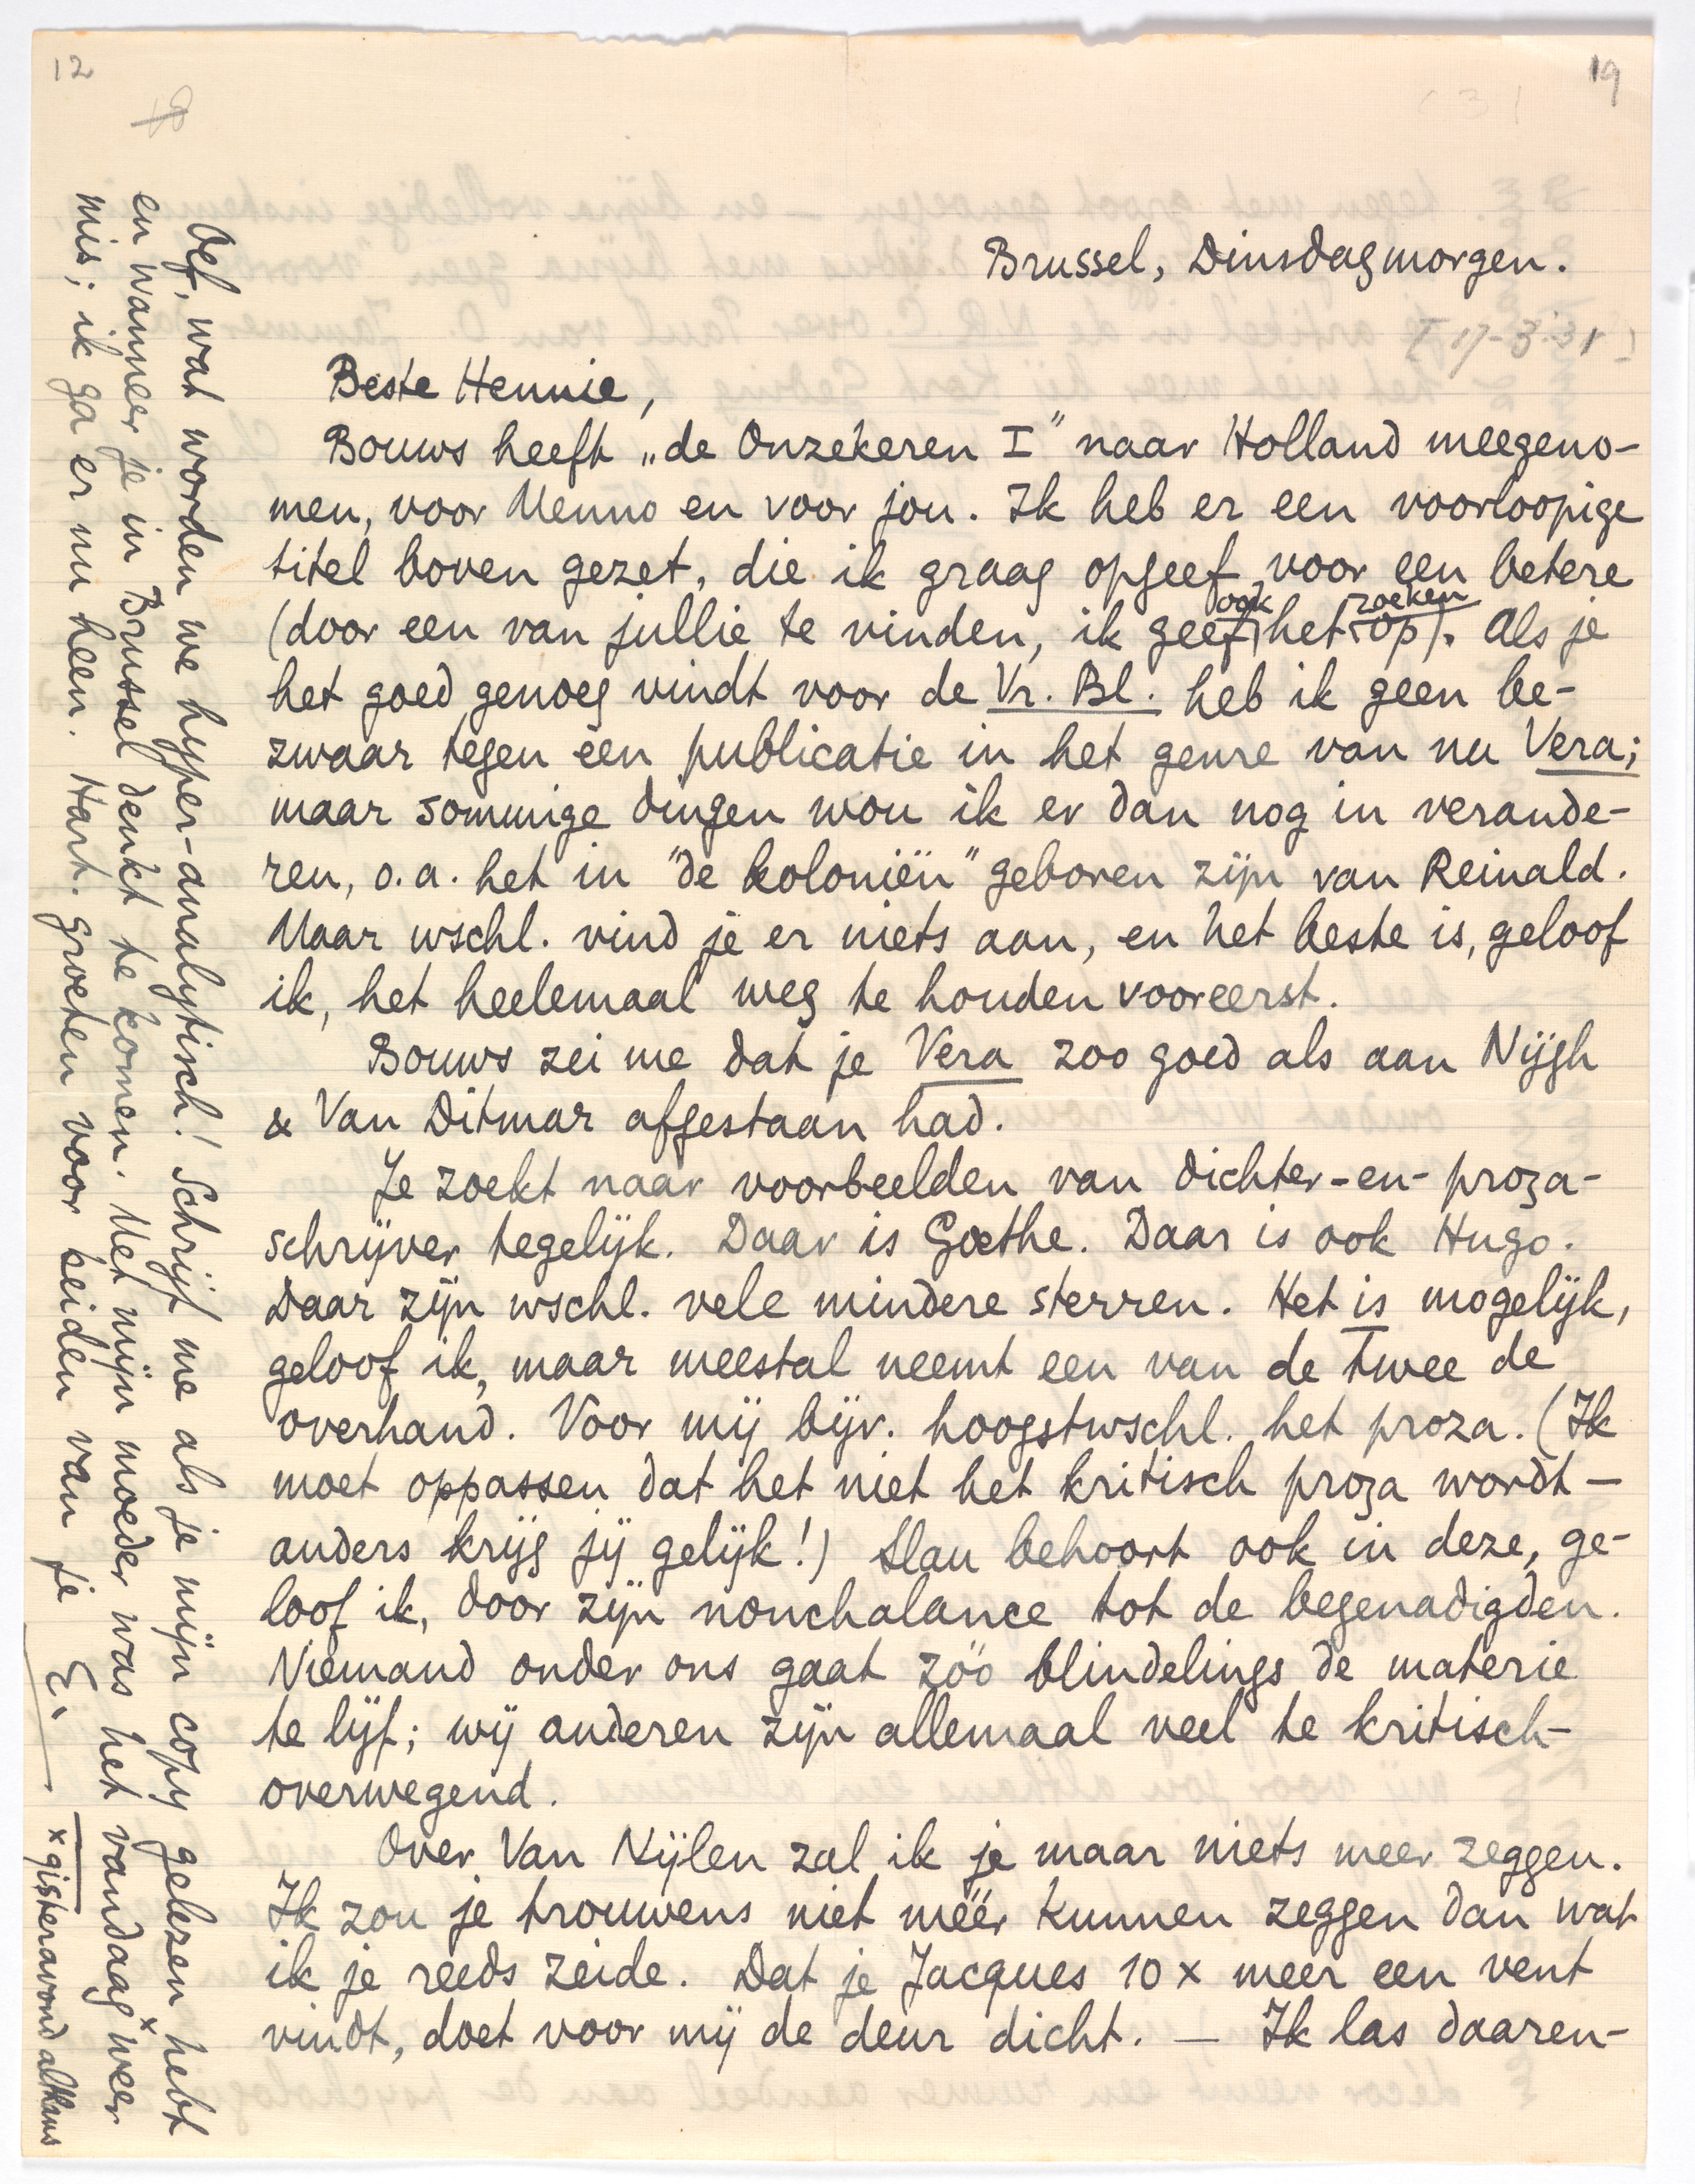 12
19
Brussel, Dinsdagmorgen.
[17-3-31]
Beste Hennie,
Bouws heeft „de Onzekeren I" naar Holland meegeno-
men, voor Menno en voor jou. Ik heb er een voorloopige
titel boven gezet, die ik graag opgeef voor een betere
(door een van jullie te vinden, ik geef ook het zoeken op). Als je
het goed genoeg vindt voor de Vr. Bl. heb ik geen be-
zwaar tegen een publicatie in het genre van nu Vera;
maar sommige dingen wou ik er dan nog in verande-
ren, o.a. het in "de koloniën" geboren zijn van Reinald.
Maar wschl. vind je er niets aan, en het beste is, geloof
ik, het heelemaal weg te houden vooreerst.
Bouws zei me dat je Vera zoo goed als aan Nijgh
& Van Ditmar afgestaan had.
Je zoekt naar voorbeelden van dichter-en-proza-
schrijver tegelijk. Daar is Goethe. Daar is ook Hugo.
Daar zijn wschl. vele mindere sterren. Het is mogelijk,
geloof ik, maar meestal neemt een van de twee de
overhand. Voor mij bijv. hoogstwschl. het proza. (Ik
moet oppassen dat het niet het kritisch proza wordt —
anders krijg jij gelijk!) Slau behoort ook in deze, ge-
loof ik, door zijn nonchalance tot de begenadigden.
Niemand onder ons gaat zóó blindelings de materie
te lijf; wij anderen zijn allemaal veel te kritisch-
overwegend.
Over Van Nijlen zal ik je maar niets meer zeggen.
Ik zou je trouwens niet méér kunnen zeggen dan wat
ik je reeds zeide. Dat je Jacques 10 x meer een vent
vindt, doet voor mij de deur dicht. — Ik las daaren-
Oef, wat worden we hyper-analytisch! Schrijf me als je mijn copy gelezen hebt
en wanneer je in Brussel denkt te komen. Met mijn moeder was het vandaag x weer
mis; ik ga er nu heen. Hart. groeten voor beiden van je E.
x gisteravond althans